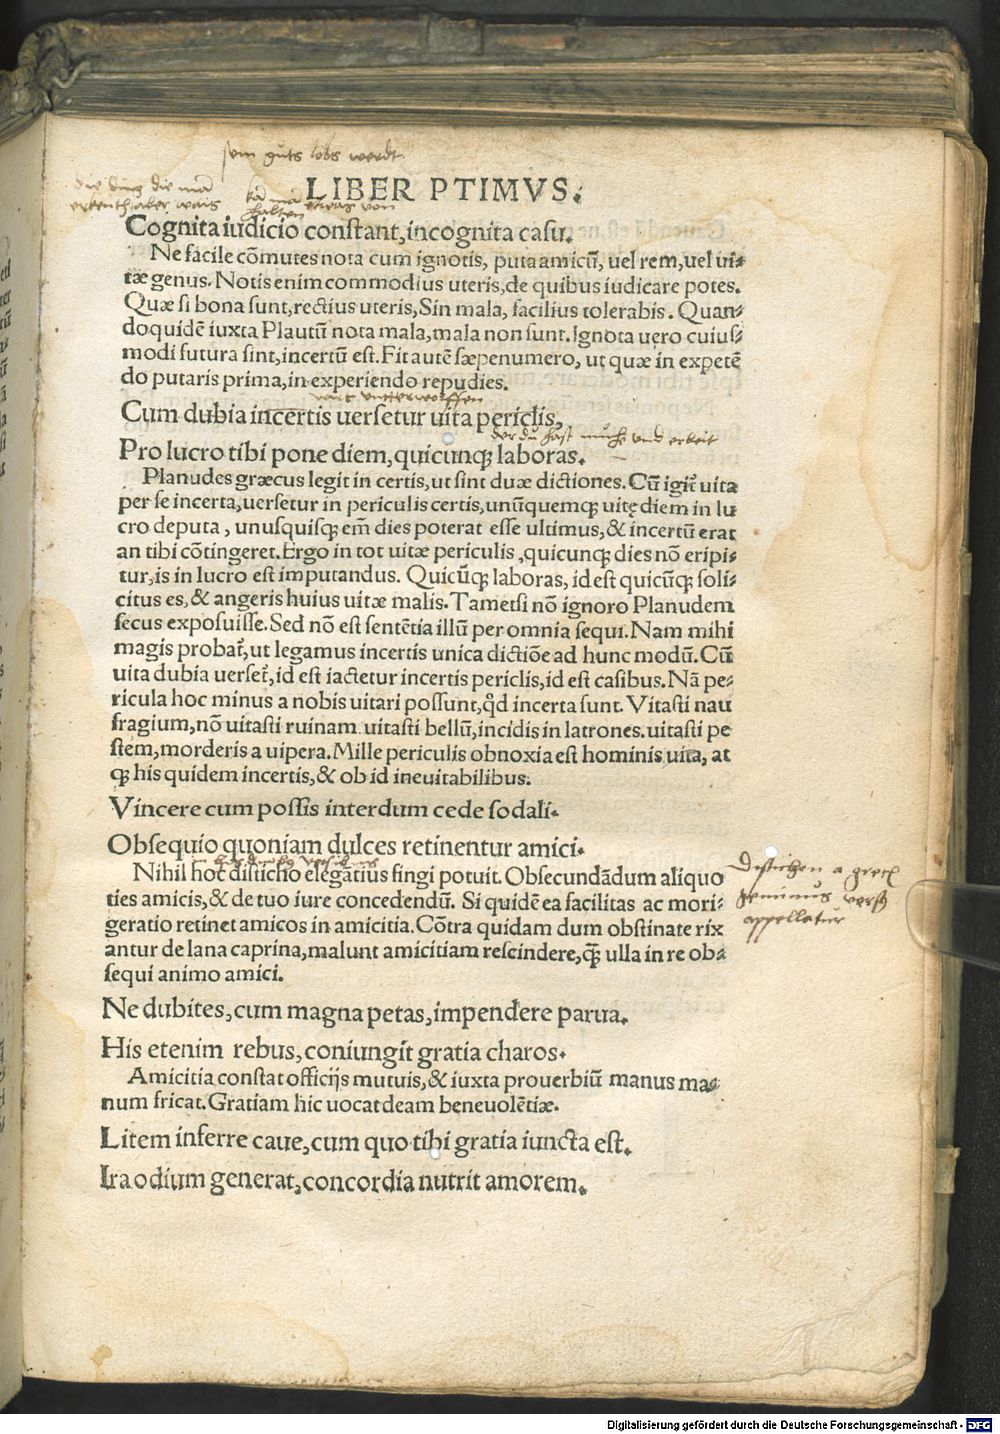 sein guts lobs werdt
die ding die mā
erkenth aber wais
kā mā etwas von
halten
LIBER PTIMVS.
Cognita iudicio constant, incognita casu.
Ne facile cōmutes nota cum ignotis, puta amicū, uel rem, uel ui-
tæ genus. Notis enim commodius uteris, de quibus iudicare potes.
Quæ si bona sunt, rectius uteris, Sin mala, facilius tolerabis. Quan-
doquidē iuxta Plautū nota mala, mala non sunt. Ignota uero cuius-
modi futura sint, incertū est. Fit autē sæpenumero, ut quæ in expetē
do putaris prima, in experiendo repudies.
wirt vnterworffen
Cum dubia incertis uersetur uita periclis,
der du hast muhe vnd erbeit
Pro lucro tibi pone diem, quicunq; laboras.
Planudes græcus legit in certis, ut sint duæ dictiones. Cū igit̄ uita
per se incerta, uersetur in periculis certis, unūquemq; uitę diem in lu
cro deputa, unusquisq; em̄ dies poterat esse ultimus, & incertū erat
an tibi cōtingeret. Ergo in tot uitæ periculis, quicunq; dies nō eripi-
tur, is in lucro est imputandus. Quicūq; laboras, id est quicūq; soli-
citus es, & angeris huius uitæ malis. Tametsi nō ignoro Planudem
secus exposuisse. Sed nō est sentētia illū per omnia sequi. Nam mihi
magis probat̄, ut legamus incertis unica dictiōe ad hunc modū. Cū
uita dubia uerset̄, id est iactetur incertis periclis, id est casibus. Nā pe-
ricula hoc minus a nobis uitari possunt, q̊d incerta sunt. Vitasti nau
fragium, nō uitasti ruinam. uitasti bellū, incidis in latrones. uitasti pe
stem, morderis a uipera. Mille periculis obnoxia est hominis uita, at
q; his quidem incertis, & ob id ineuitabilibus.
Vincere cum possis interdum cede sodali.
Obsequio quoniam dulces retinentur amici.
Nihil hoc disticho elegātius fingi potuit. Obsecundādum aliquo
ties amicis, & de tuo iure concedendū. Si quidē ea facilitas ac mori-
geratio retinet amicos in amicitia. Cōtra quidam dum obstinate rix
antur de lana caprina, malunt amicitiam rescindere, q̄ ulla in re ob-
sequi animo amici.
Distichon a grecꝭ
geminus versꝰ
appellatur
Ne dubites, cum magna petas, impendere parua.
His etenim rebus, coniungit gratia charos.
Amicitia constat officijs mutuis, & iuxta prouerbiū manus ma-
num fricat. Gratiam hic uocat deam beneuolētiæ.
Litem inferre caue, cum quo tibi gratia iuncta est.
Ira odium generat, concordia nutrit amorem.
Digitalisierung gefördert durch die Deutsche Forschungsgemeinschaft - DFG